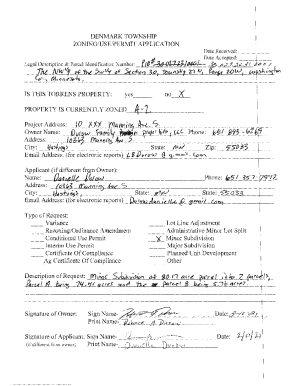 DENMARK TOWNSHIP
ZONING/USE/PERMIT APPLICATION
Date Received:
Date Accepted:
Legal Description & Parcel Identification Number:
The NW¼ of the SW¼ of Section 30, Township 27N, Range 20W, Washington
Co, Minnesota
IS THIS TORRENS PROPERTY: yes no X
PROPERTY IS CURRENTLY ZONED A-2
Project Address: 10 XXX Manning Ave S.
Owner Name: Durow Family Properties, LLC Phone:
Address: 10865 Manning Ave S.
City: Hastings State: MN Zip: 55033
Email Address: (for electronic reports) @gmail.com
Applicant (if different from Owner):
Name: Danielle Durow Phone: 651
Address: 10865 Manning Ave S.
City: Hastings State: MN State: 55033
Email Address: (for electronic reports) @gmail.com
Type of Request:
Variance
Rezoning/Ordinance Amendment
Conditional Use Permit
Interim Use Permit
Certificate Of Compliance
Ag Certificate Of Compliance
Lot Line Adjustment
Administrative Minor Lot Split
X Minor Subdivision
Major Subdivision
Planned Unit Development
Other
Description of Request: Minor Subdivision of 80.17 acre parcel into 2 parcels,
Parcel A being 74.41 acres and Parcel B being 5.76 acres.
Signature of Owner: Sign Name- Date:
Print Name- Rebecca A Durow
Signature of Applicant: Sign Name- Date:
(if different from owner) Print Name- Danielle Durow